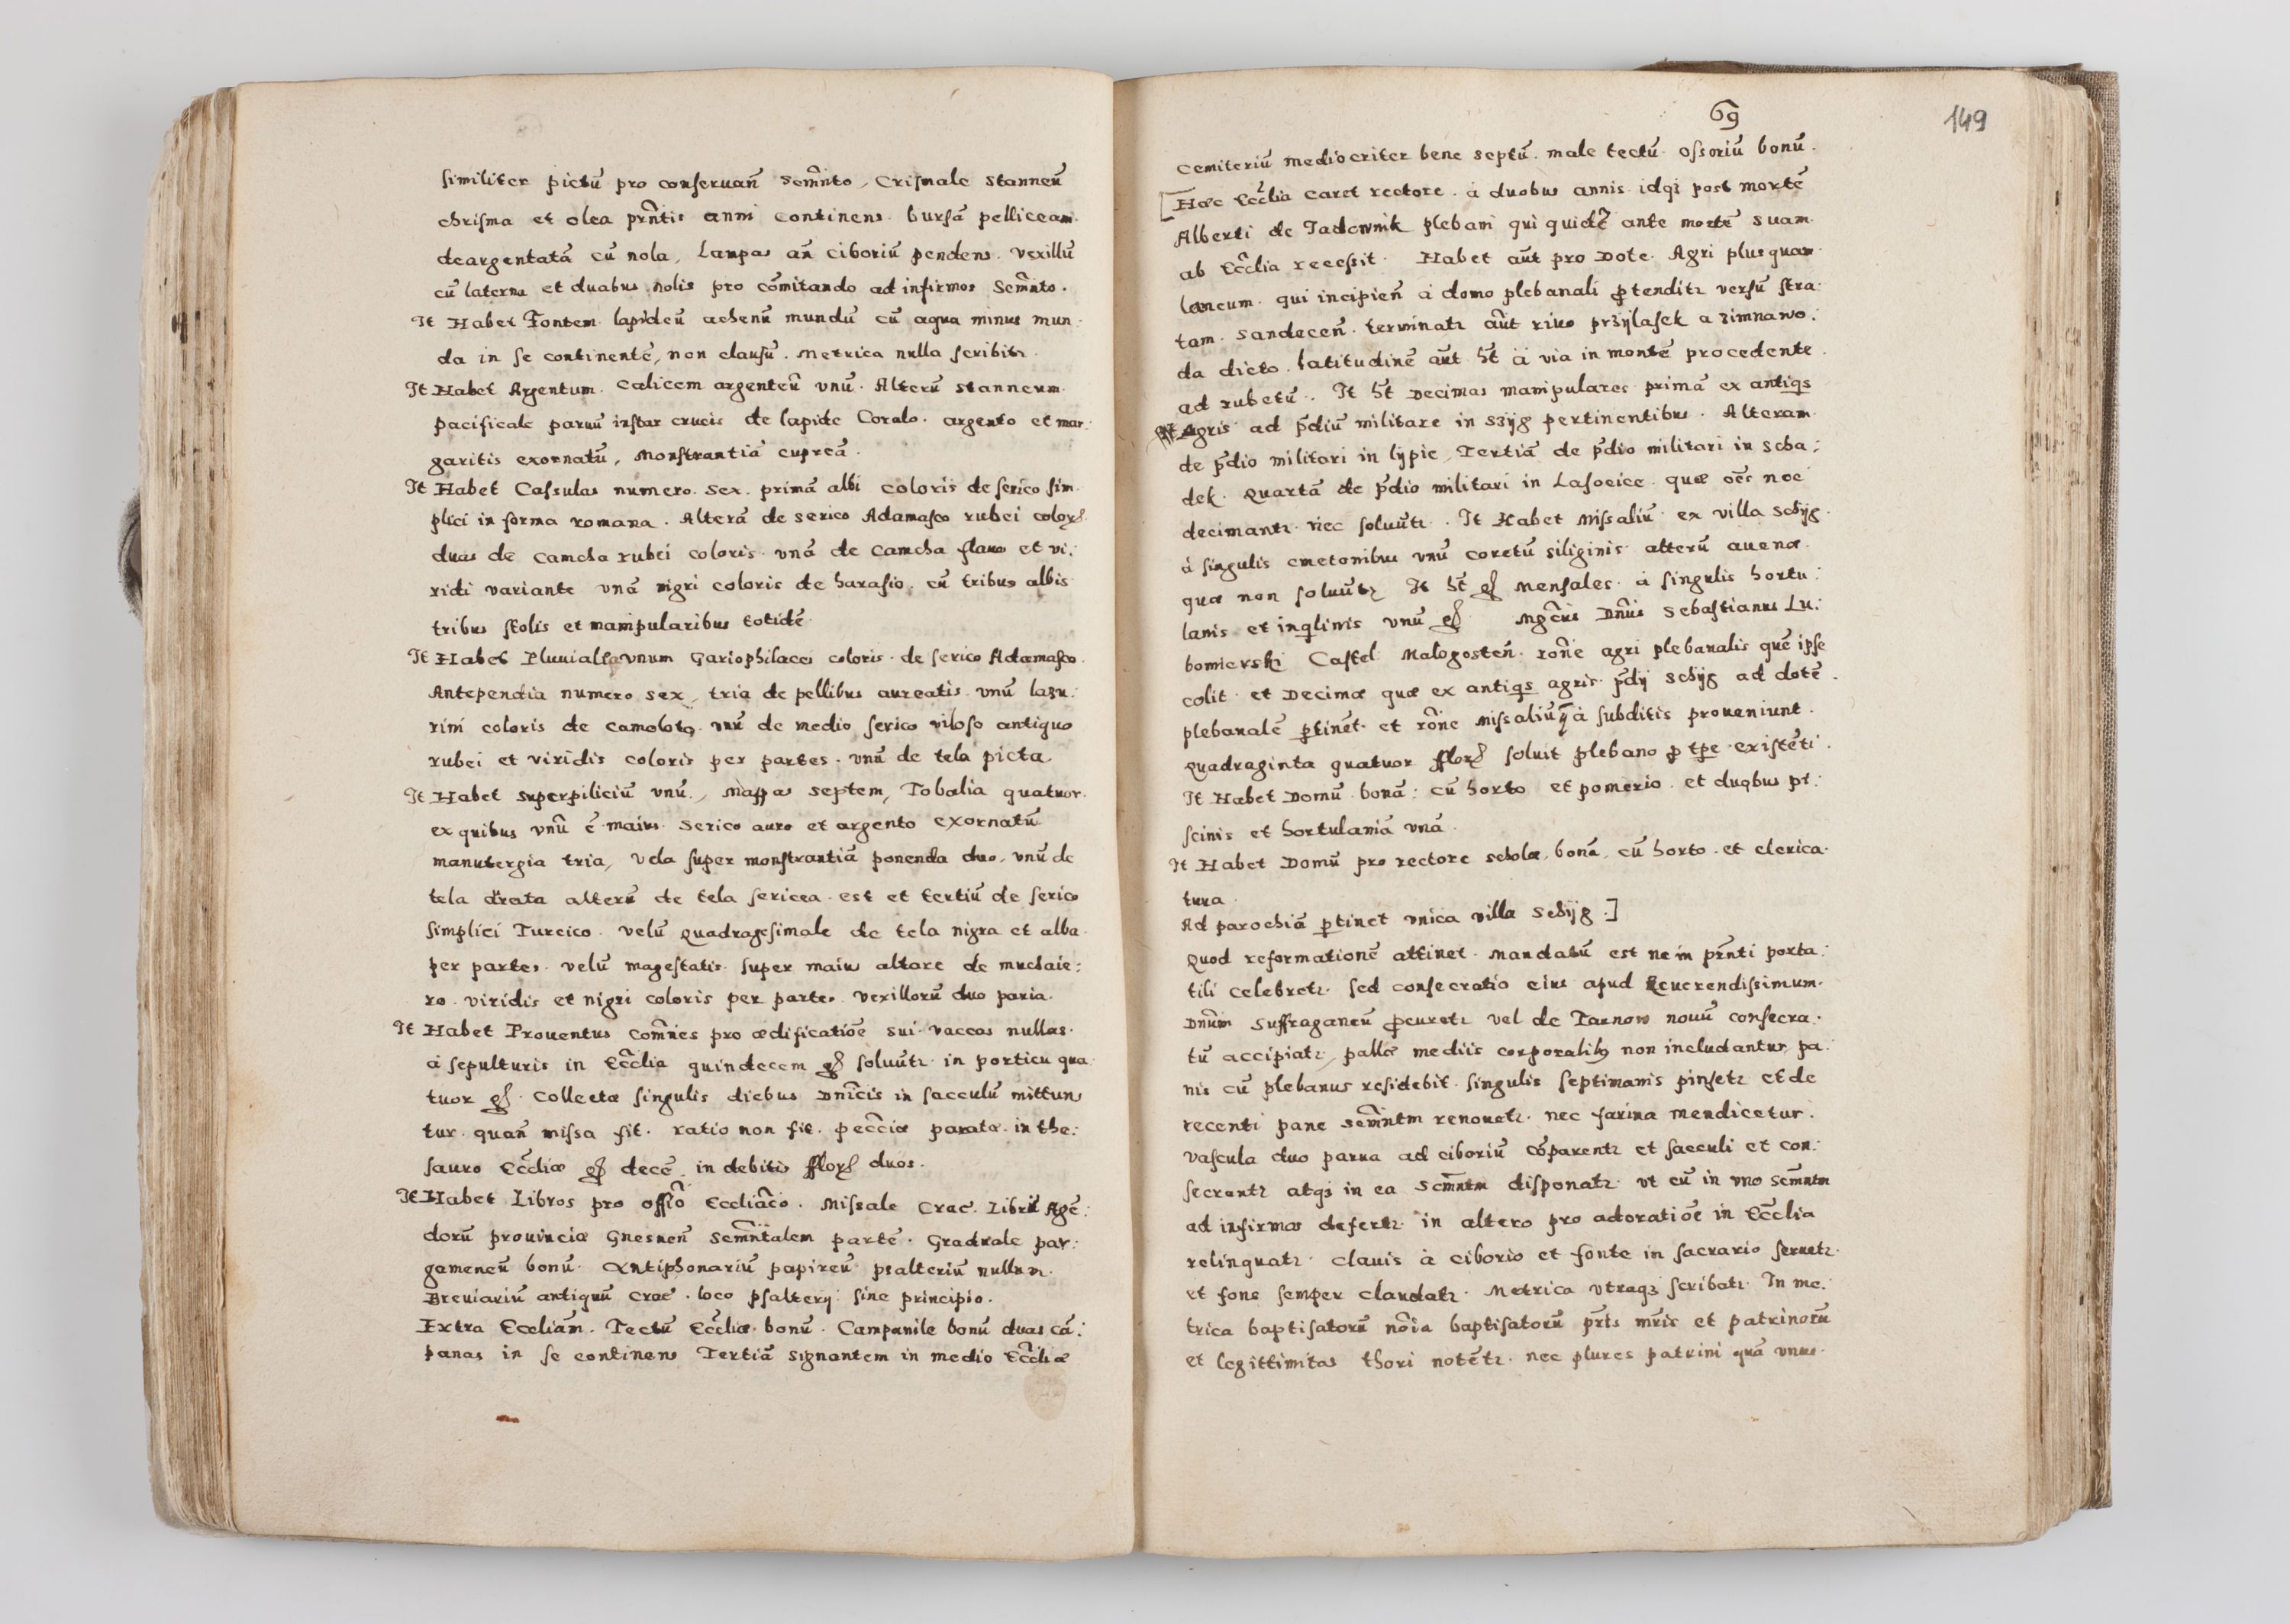 similiter pictū pro conseruañ Semñto, Crismale stanneū
chrisma et olea prñtis anni continens bursā pelliceam
deargentatā cū nola, Lampas añ ciboriū pendens. Vexillū
cū laterna et duabus nolis pro cōmitando ad infirmos Semñto.
It Habet Fontem lapideū achenū mundū cū aqua minus mun:
da in se continentē, non clausū. Metrica nulla scribitr.
It Habet Argentum. Calicem argenteū vnū. Alterū stanneum
pacificale paruū instar crucis de lapide Coralo. argento et mar:
garitis exornatū, Monstrantiā cupreā.
It Habet Cassulas numero sex. primā albi coloris de serico sim
plici in forma romana. Alterā de serico Adamasco rubei color
duas de camcha rubei coloris vnā de camcha flauo et vi:
ridi variante vnā nigri coloris de harasio. cū tribus albis
tribus stolis et manipularibus totidē
It Habet Pluuiale vnum Gariophilacei coloris de serico Adamasco.
Antependia numero sex, tria de pellibus aureatis vnū lazu:
rini coloris de camoloto vnū de medio serico viloso antiquo
rubei et viridis coloris per partes. vnū de tela picta
It Habet superpiliciū vnū, Mappas septem, Tobalia quatuor.
ex quibus vnū ē maius serico auro et argento exornatū
manutergia tria, Vela super monstrantiā ponenda duo, vnū de
tela alterū de tela sericea est et tertiū de serico
simplici Turcico. velū quadragesimale de tela nigra et alba
per partes. velū magestatis super maius altare de muchaie:
ro viridis et nigri coloris per partes. vexillorū duo paria.
It Habet Prouentus comñes pro ædificatiōe sui vaccas nullas.
à sepulturis in Eccĺia quindecem gſ soluūtr in porticu qua
tuor gſ. Collectæ singulis diebus Dñicis in sacculū mittun
tur quañ missa fit. ratio non fit. peccĩæ paratæ in the:
sauro Eccĺiæ gſ decē in debitis flor duos.
It Habet Libros pro offiō Eccliāco. Missale Crac. Libri Agē:
dorū prouinciæ Gnesneñ Semñtalem partē. Graduale par:
gameneū bonū. Antiphonariū papireū psalteriū nullum.
Breuiariū antiquū Crac. loco psaltery sine principio.
Extra Eccliām. Tectū Eccĺiæ bonū. Campanile bonū duas cā:
panas in se continens Tertiā signantem in medio Eccĺiæ
69
149
Cemiteriū mediocriter bene septū. male tectū ossoriū bonū.
[Hæc Eccĺia caret rectore à duobus annis idqʒ post mortē
Alberti de Tadownik plebani qui quidē ante mortē suam
ab Eccĺia recessit. Habet aūt pro Dote. Agri plusquam
laneum qui incipień à domo plebanali ꝓtenditr versū stra
tam Sandeceñ. terminatr aūt riuo przÿlasek a zimnawo:
da dicto. Latitudinē aūt ħt à via in montē procedente.
ad rubetū. It ħt Decimas manipulares primā ex antiqs
agris ad ꝑdiū militare in szÿg pertinentibus. Alteram
de ꝑdio militari in lÿpie, Tertiā de ꝑdio militari in Scha:
dek. Quartā de ꝑdio militari in Lasocice quæ oēs nec
decimantr nec soluūtr. It Habet Missaliū ex villa Schÿg
à singulis cmetonibus vnū coretū siliginis alterū auenæ
quæ non soluūtr It ħt gſ Mensales à singulis hortu:
lanis et inqlinis vnū gſ. Mgcūs Dñus Sebastianus Lu:
bomierski Castel Malogosteñ. rōne agri plebanalis quē ipse
colit et Decimæ quæ ex antiqs agris ꝑdÿ Schÿg ad dotē
plebanalē ꝑtinēt et rōne Missaliū à subditis proueniunt.
Quadraginta quatuor flor soluit plebano ꝓ tpe existēti.
It Habet Domū bonā: cū horto et pomerio et duobus pi:
scinis et hortulaniā vnā.
It Habet Domū pro rectore scholæ, bonā, cū horto et clerica
tura.
Ad parochiā ꝑtinet vnica villa Schÿg.]
Quod reformationē attinet. Mandatū est ne in prñti porta:
tili celebretr. sed consecratio eius apud Reuerendissimum
Dñum Suffraganeū ꝓcuretr vel de Tarnow nouū consecra:
tū accipiatr, pallæ mediis corporalibus non includantur, pa:
nis cū plebanus residebit singulis septimanis pinsetr et de
recenti pane Semñtm renouetr. nec farina mendicetur.
Vascula duo parua ad ciboriū cōparentr et sacculi et con:
secrentr atqʒ in ea Semñtm disponatr vt cū in vno Semñtm
ad infirmos defertr in altero pro adoratiōe in Eccĺia
relinquatr. Clauis à ciborio et fonte in sacrario seruetr.
et fons semper claudatr. Metrica vtraqʒ scribatr. In me:
trica baptisatorū nōia baptisatorū pr̃is mr̃is et patrinorū
et legittimitas thori notētr. nec plures patrini quā vnus